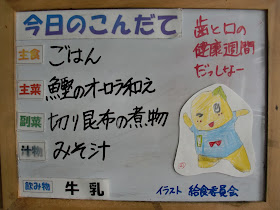 今日のこんだて
主食 ごはん
主菜 鰹のオーロラ和え
副菜 切り昆布の煮物
汁物 みそ汁
飲み物 牛乳
歯と口の
健康週間
だっしなー
イラスト 給食委員会